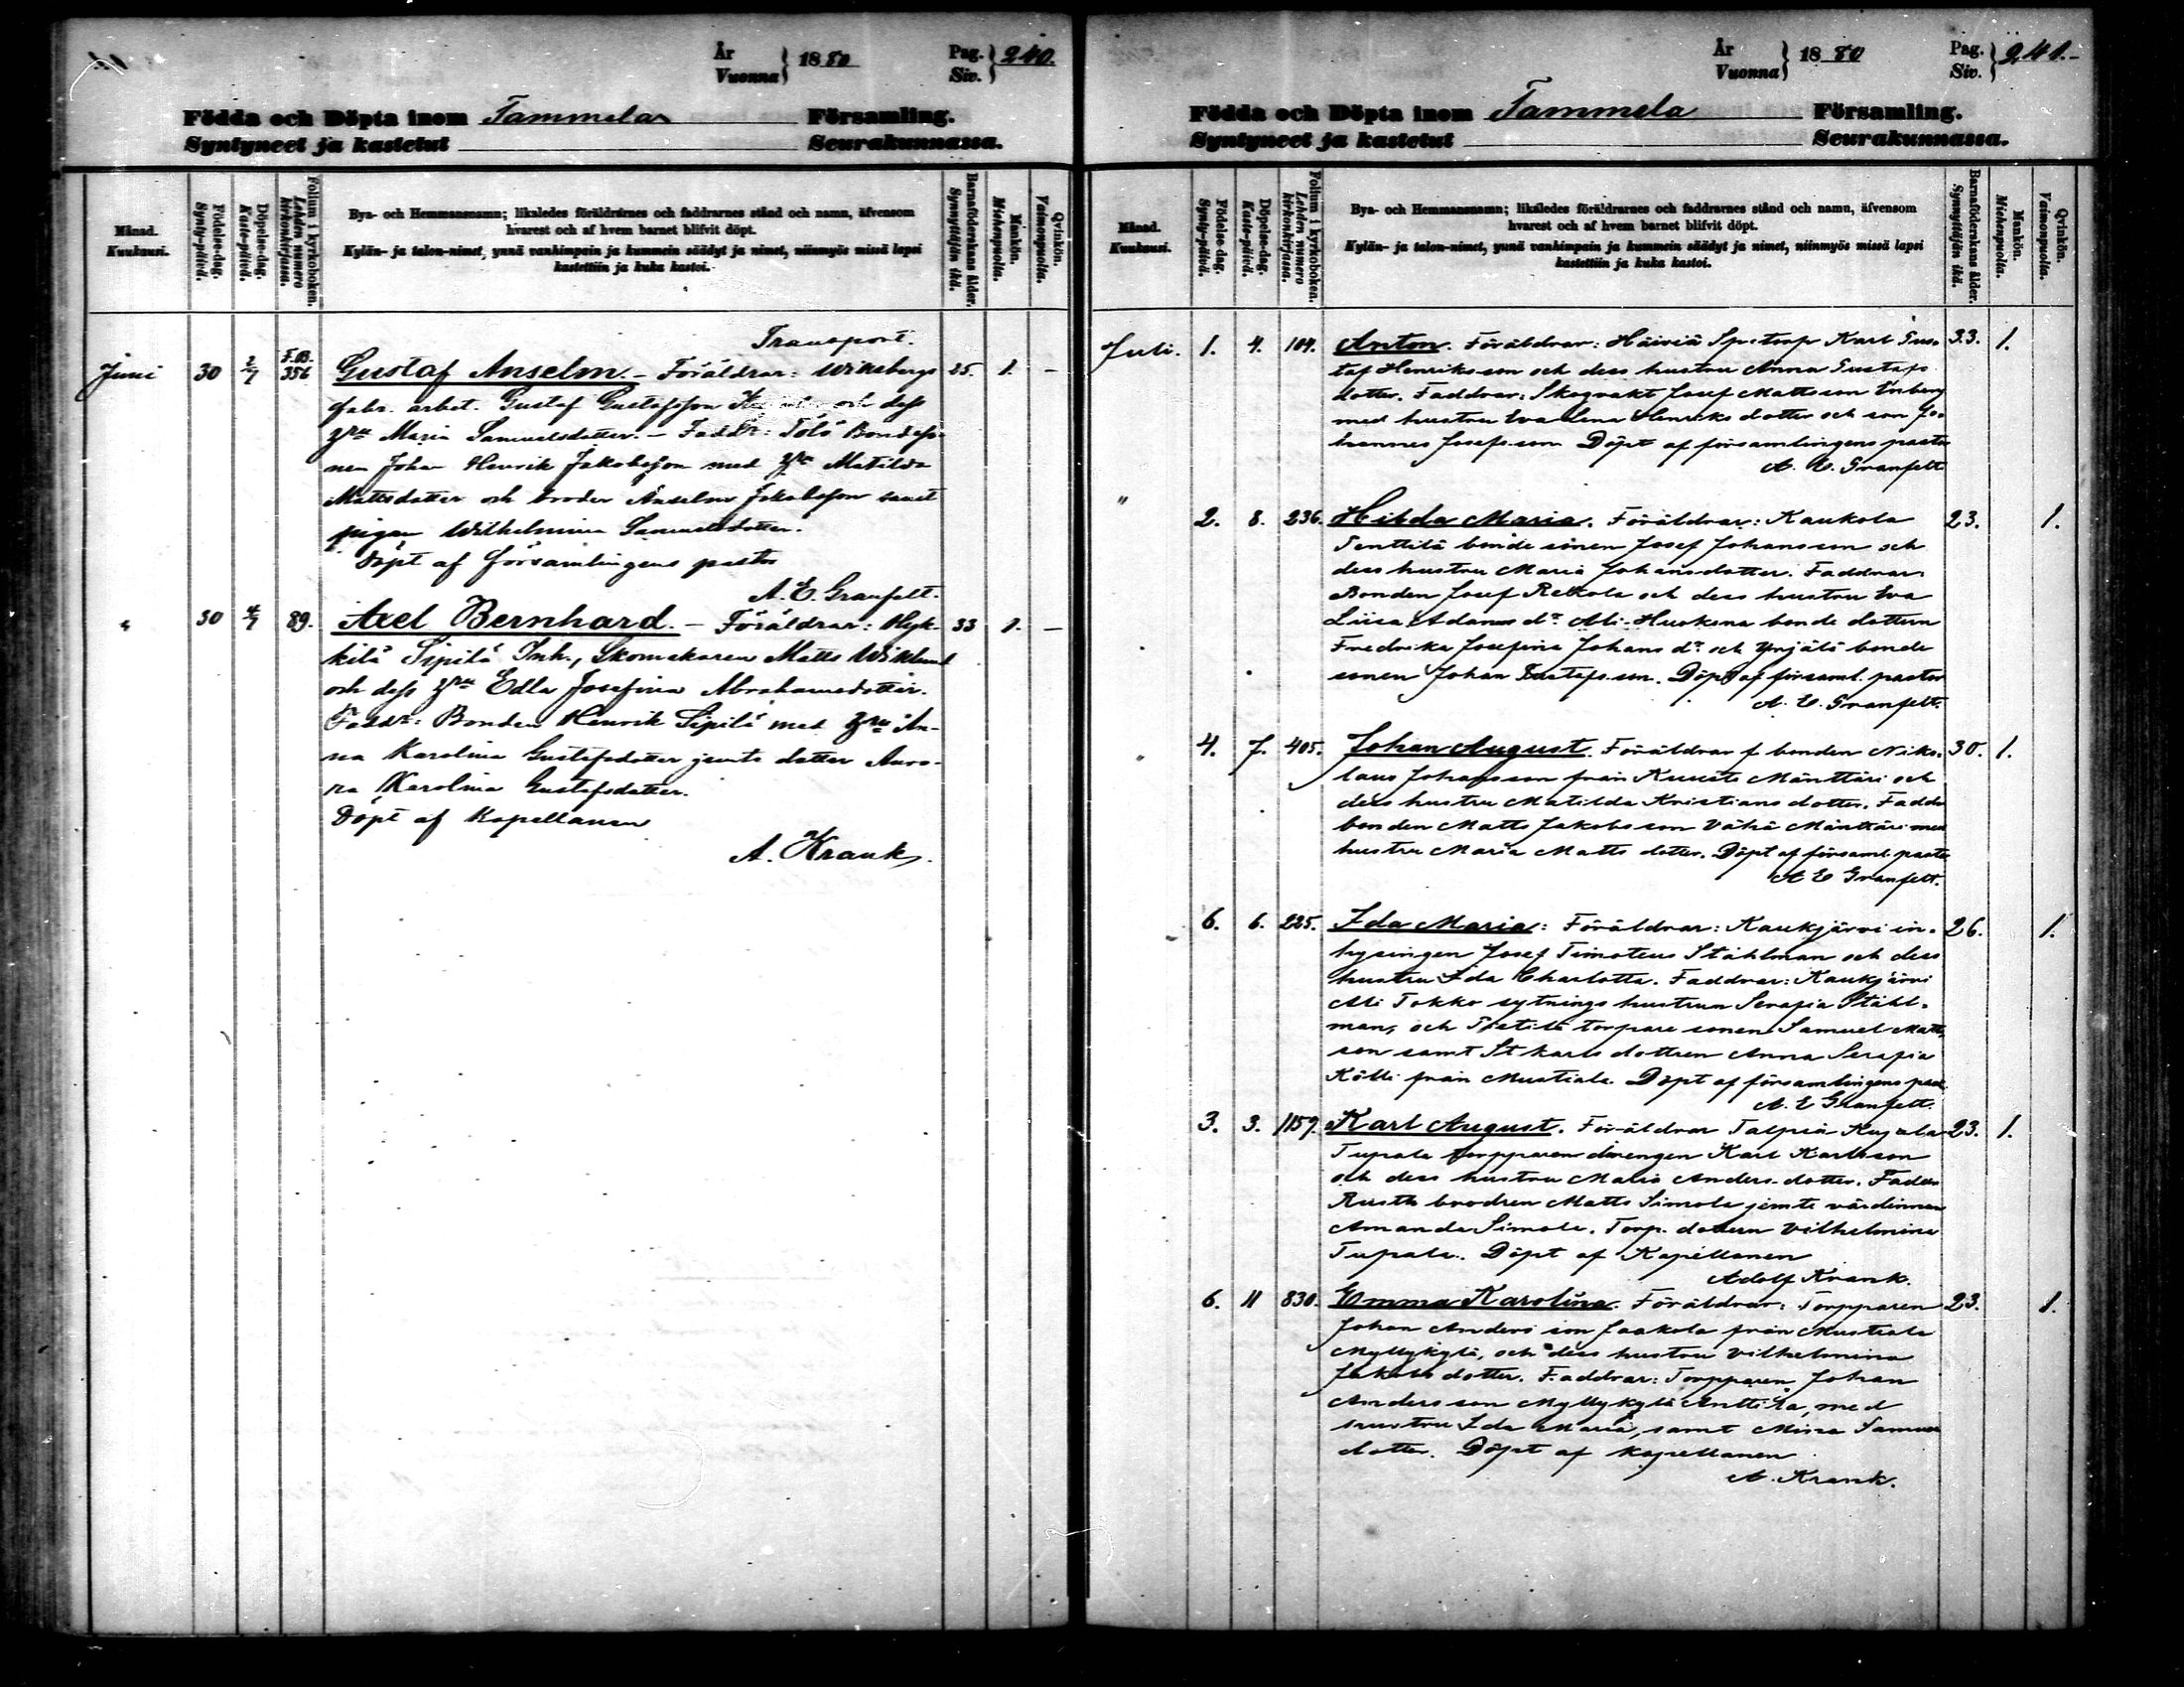 År
Vuonna } 1880 Pag.
Siv. } 240.
Födda och Döpta inom Tammela Församling.
Syntyneet ja kastetut Seurakunnassa.
Månad.
Kuukausi.
Födelse-dag.
Synty-päivä.
Döpelse-dag.
Kaste-päivä.
Folium i kyrkoboken.
Lehden numero
kirkonkirjassa.
Bya- och Hemmansnamn; likaledes föräldrarnes och faddrarnes stånd och namn, äfvensom
hvarest och af hvem barnet blifvit döpt.
Kylän- ja talon-nimet, ynnä vanhimpain ja kummein säädyt ja nimet, niinmyös missä lapsi
kastettiin ja kuka kastoi.
Barnaföderskans ålder.
Synnyttäjän ikä.
Mankön.
Miehenpuolta.
Qvinkön.
Vaimonpuolta.
Transport.
Juni 30 2/7 F.B. 356 Gustaf Anselm. - Föräldrar: Wiksbergs 25. 1. -
fabr. arbet. Gustaf Gustafsson och dess
hru Maria Samuelsdotter. - Faddr: Tolö Bondeso-
nen Johan Henrik Jakobsson med hru Matilda
Mattsdotter och broder Anselm Jakobsson samt
pigan Wilhelmina Samuelsdotter.
Döpt af församlingens pastor
A. E. Granfelt.
" 30 4/7 89. Axel Bernhard. - Föräldrar: Hyk- 33 1. -
kilä Sipilä Inh., Skomakaren Matts Wiklund
och dess hru Edla Josefina Abrahamsdotter.
Faddr: Bonden Henrik Sipilä med hru An-
na Karolina Gustafsdotter jemte dotter Auro-
ra Karolina Gustafsdotter.
Döpt af Kapellanen
A. Krank.
År
Vuonna } 1880 Pag.
Siv. } 241.-
Födda och Döpta inom Tammela Församling.
Syntyneet ja kastetut Seurakunnassa.
Månad.
Kuukausi.
Födelse-dag.
Synty-päivä.
Döpelse-dag.
Kaste-päivä.
Folium i kyrkoboken.
Lehden numero
kirkonkirjassa.
Bya- och Hemmansnamn; likaledes föräldrarnes och faddrarnes stånd och namn, äfvensom
hvarest och af hvem barnet blifvit döpt.
Kylän- ja talon-nimet, ynnä vanhimpain ja kummein säädyt ja nimet, niinmyös missä lapsi
kastettiin ja kuka kastoi.
Barnaföderskans ålder.
Synnyttäjän ikä.
Mankön.
Miehenpuolta.
Qvinkön.
Vaimonpuolta.
Juli. 1. 4. 104. Anton. Föräldrar: Häiviä Karl Gus- 33. 1.
taf Henriksson och dess hustru Anna Gustafs
dotter. Faddrar: Skogvakt Josef Mattsson
med hustru Eva Lena Henriks dotter och son Jo-
hannes Josefsson Döpt af församlingens pastor
A. E. Granfelt
" 2. 8. 236. Hilda Maria. Föräldrar: Kaukola 23. 1.
Penttilä bonde sonen Josef Johansson och
dess hustru Maria Johansdotter. Faddrar:
Bonden Josef Retkola och dess hustru Eva
Liisa Adams dr Ali-Huokena bonde dottern
Fredrika Josefina Johans dr och Yrjälä bonde
sonen Johan Gustafsson. Döpt af församl. pastor
A. E. Granfelt.
" 4. 7. 405. Johan August. Föräldrar f. bonden Niko- 30. 1.
laus Johansson från Mänttäri och
dess hustru Matilda Kristians dotter. Faddr
bonden Matts Jakobsson Vähä Mänttäri med
hustru Maria Matts dotter. Döpt af församl. pastor
A E Granfelt.
6. 6. 225. Ida Maria: Föräldrar: Kaukjärvi in- 26. 1.
hysingen Josef Timoteus Ståhlman och dess
hustru Ida Charlotta. Faddrar: Kaukjärvi
Ali Tokko sytnings hustrun Serafia Ståhl-
man, och torpare sonen Samuel Matts
son samt dottren Anna Serafia
Kölli från Mustiala. Döpt af församlingens past
A. E Granfelt.
3. 3. 1159. Karl August. Föräldrar Talpia Kujala 23. 1.
Tupala torpparen drengen Karl Karlsson
och dess hustru Maria Anders-dotter. Faddr
Rusth brodren Matts Simola jemte värdinnan
Amanda Simola. Torp. dottern Vilhelmina
Tupala. Döpt af Kapellanen
Adolf Krank.
6. 11 830. Emma Karolina. Föräldrar: Torpparen 23. 1.
Johan Anders son Jaakola från Mustiala
Myllykylä, och dess hustru Vilhelmina
Jakobs dotter. Faddrar: Torpparen Johan
Andersson Myllykylä Anttila, med
hustru Ida Maria, samt Mina Samuels
dotter. Döpt af kapellanen
A. Krank.